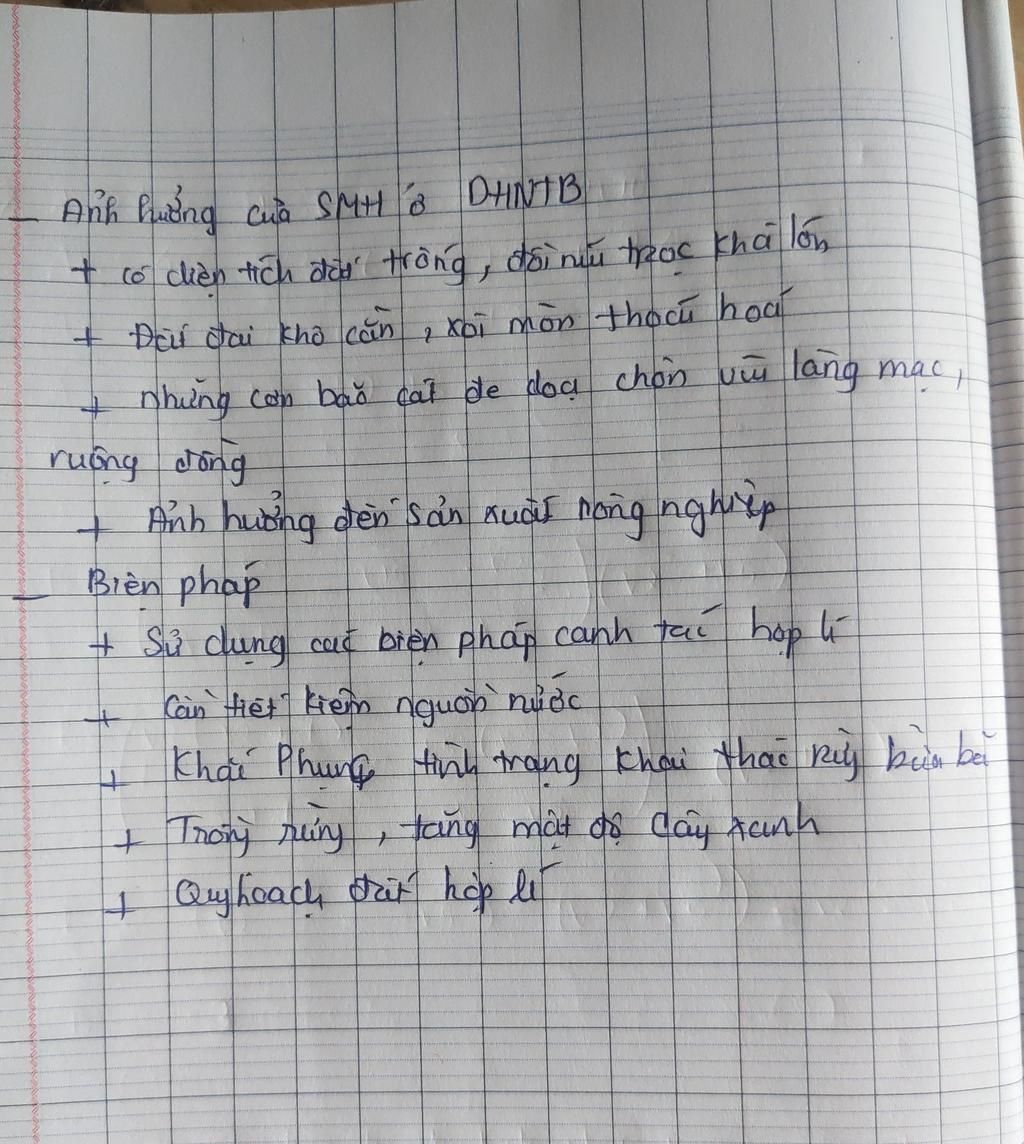 - Ảnh hưởng của SMH ở DHNTB
+ có diện tích đất trống, đồi núi trọc khá lớn
+ Đất đai khô cằn, xói mòn thoái hoá
+ những cơn bão cát đe doạ chôn vùi làng mạc,
ruộng đồng
+ Ảnh hưởng đến sản xuất nông nghiệp
- Biện pháp
+ Sử dụng các biện pháp canh tác hợp lí
+ Cần tiết kiệm nguồn nước
+ Khắc Phục tình trạng khai thác rừng bừa bãi
+ Trồng rừng, tăng mật độ cây xanh
+ Quy hoạch đất hợp lí